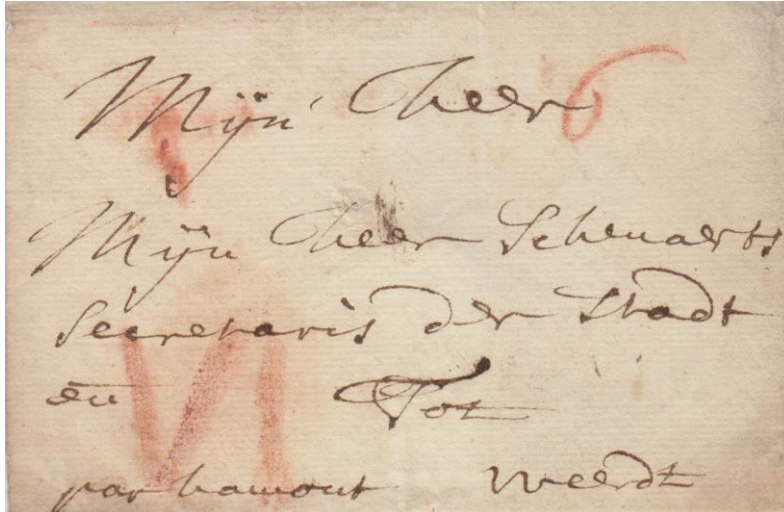 Mijn heer 6
Mijn heer Schenaerts
Secretaris der Stadt
en Tot
par hamont Weerdt